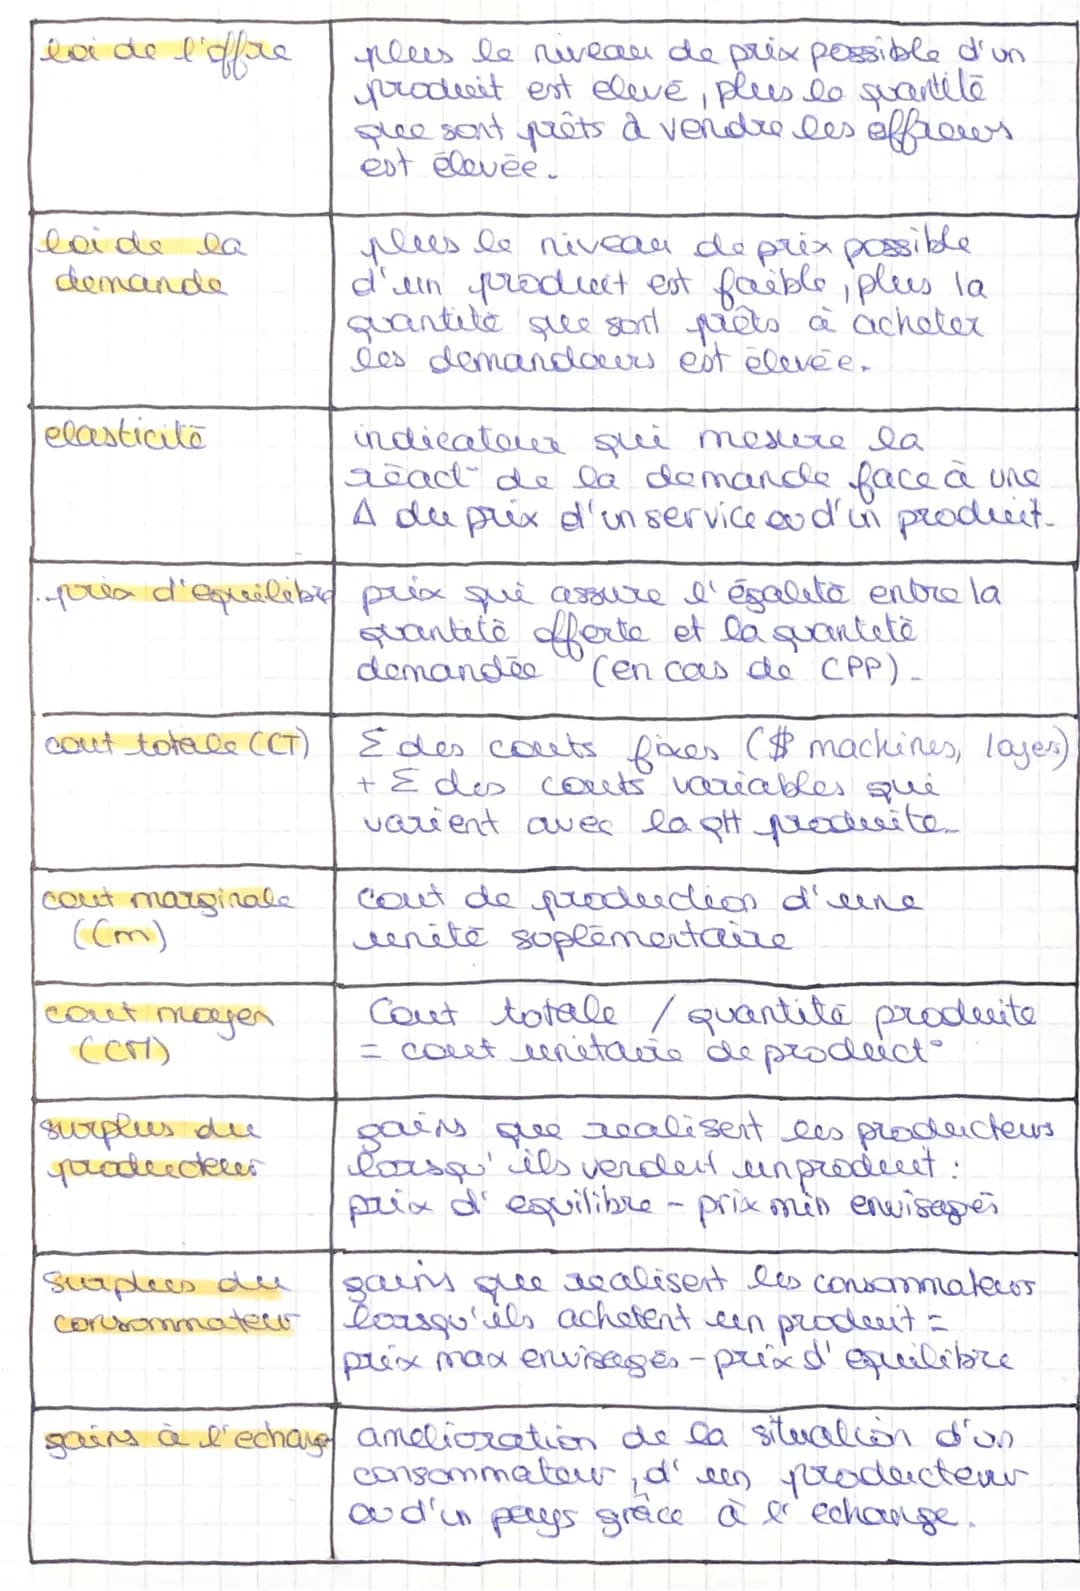 loi de l'offre
plus le niveau de prix possible d'un
produit est elevé, plus la quantité
que sont prêts à vendre les offreurs
est élevée.
loi de la
demande
plus le niveau de prix possible
d'un produit est faible, plus la
quantité que sont prêts à acheter
les demandeurs est élevée.
elasticité
indicateur qui mesure la
réact° de la demande face à une
Δ du prix d'un service ou d'un produit.
prix d'equilibre
prix qui assure l'égalité entre la
quantité offerte et la quantité
demandée (en cas de CPP).
cout totale (CT)
Σ des couts fixes ($ machines, loyers)
+ Σ des couts variables qui
varient avec la qtt produite.
cout marginale
(Cm)
cout de production d'une
unité soplémentaire
cout moyen
(CM)
Cout totale / quantité produite
= cout unitaire de product°
surplus du
producteur
gains que realisent les producteurs
lorsqu'ils vendent un produit :
prix d'equilibre - prix min envisagés
Surplus du
consommateur
gains que realisent les consommateurs
lorsqu'ils achetent un produit =
prix max envisagés - prix d'equilibre
gains à l'echange
amelioration de la situation d'un
consommateur, d'un producteur
ou d'un pays grâce à l'echange.